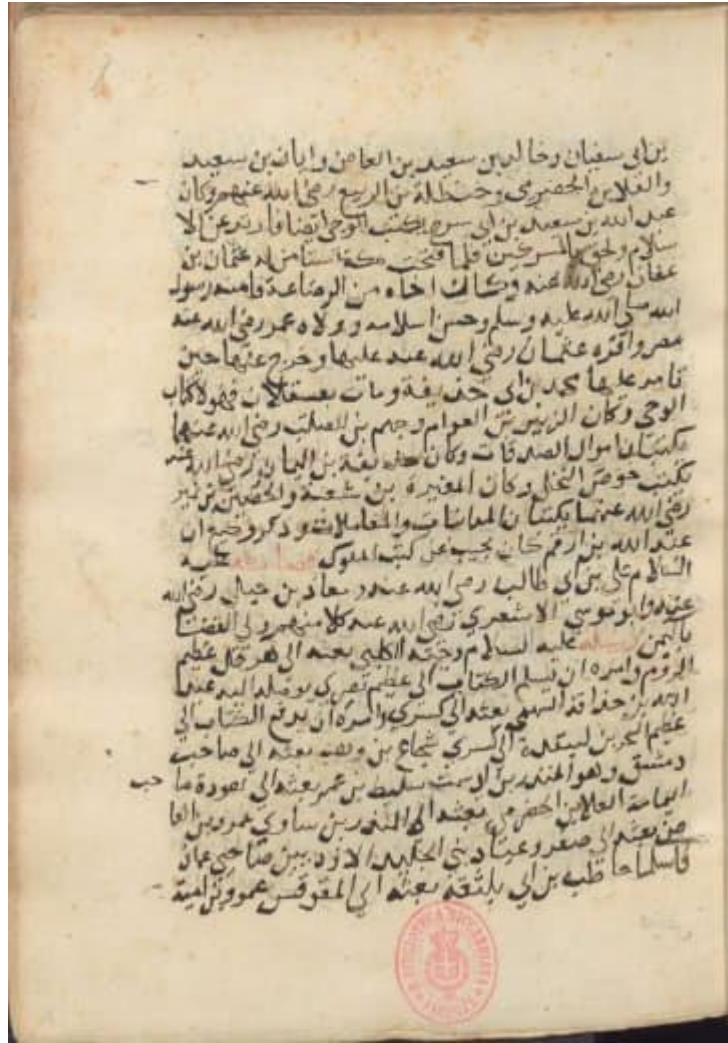 بن ابى سفيان وخالد بن سعيد بن العاص وابان بن سعيد
والعلا بن الحضرمي وحنظلة بن الربيع رضي الله عنهم وكان
عبد الله بن سعيد بن ابى سرح يكتب الوحي ايضا فارتد عن الا
سلام ولحق بالمشركين فلما فتحت مكة استامن له عثمان بن
عفان رضي الله عنه وكان اخاه من الرضاعة فامنه رسول
الله صلى الله عليه وسلم وحسن اسلامه وولاه عمر رضي الله عنه
مصر واقره عثمان رضي الله عنه عليها وخرج عنها حين
قام عليها محمد بن ابى حذيفة ومات بعسقلان فهولا كتاب
الوحي وكان الزبير بن العوام وجهم بن الصلت رضي الله عنهما
يكتبان اموال الصدقات وكان حذيفة بن اليمان رضي الله عنه
يكتب خرص النخل وكان المغيرة بن شعبة والحصين بن نمير
رضي الله عنهما يكتبان المعاملات وذكروا ان
عبد الله بن ارقم كان يجيب عن كتب الملوك عليه
السلام علي بن ابي طالب رضي الله عنه ومعاذ بن جبل رضي الله
عنه وابو موسي الاشعري رضي الله عنه كلا منهم ولي القضا
باليمن عليه السلام دحية الكلبي بعثه الى هرقل عظيم
الروم وامره ان يسلم الكتاب الى عظيم بصرى يوصله اليه عبد
الله بن حذافة السهمي بعثه الي كسري وامره ان يدفع الكتاب الي
عظيم البحرين الى كسري شجاع بن وهب بعثه الي صاحب
دمشق وهو المنذر بن سليط بن عمر بعثه الي هوذة صا حب
اليمامة العلا بن الحضرمي بعثه الي المنذر بن ساوي عمرو بن العا
ص بعثه الي وعباد بني الجلندا الازديين صاحبي عمان
فاسلما حاطب بن ابي بلتعة بعثه الي المقوقس عمرو بن امية